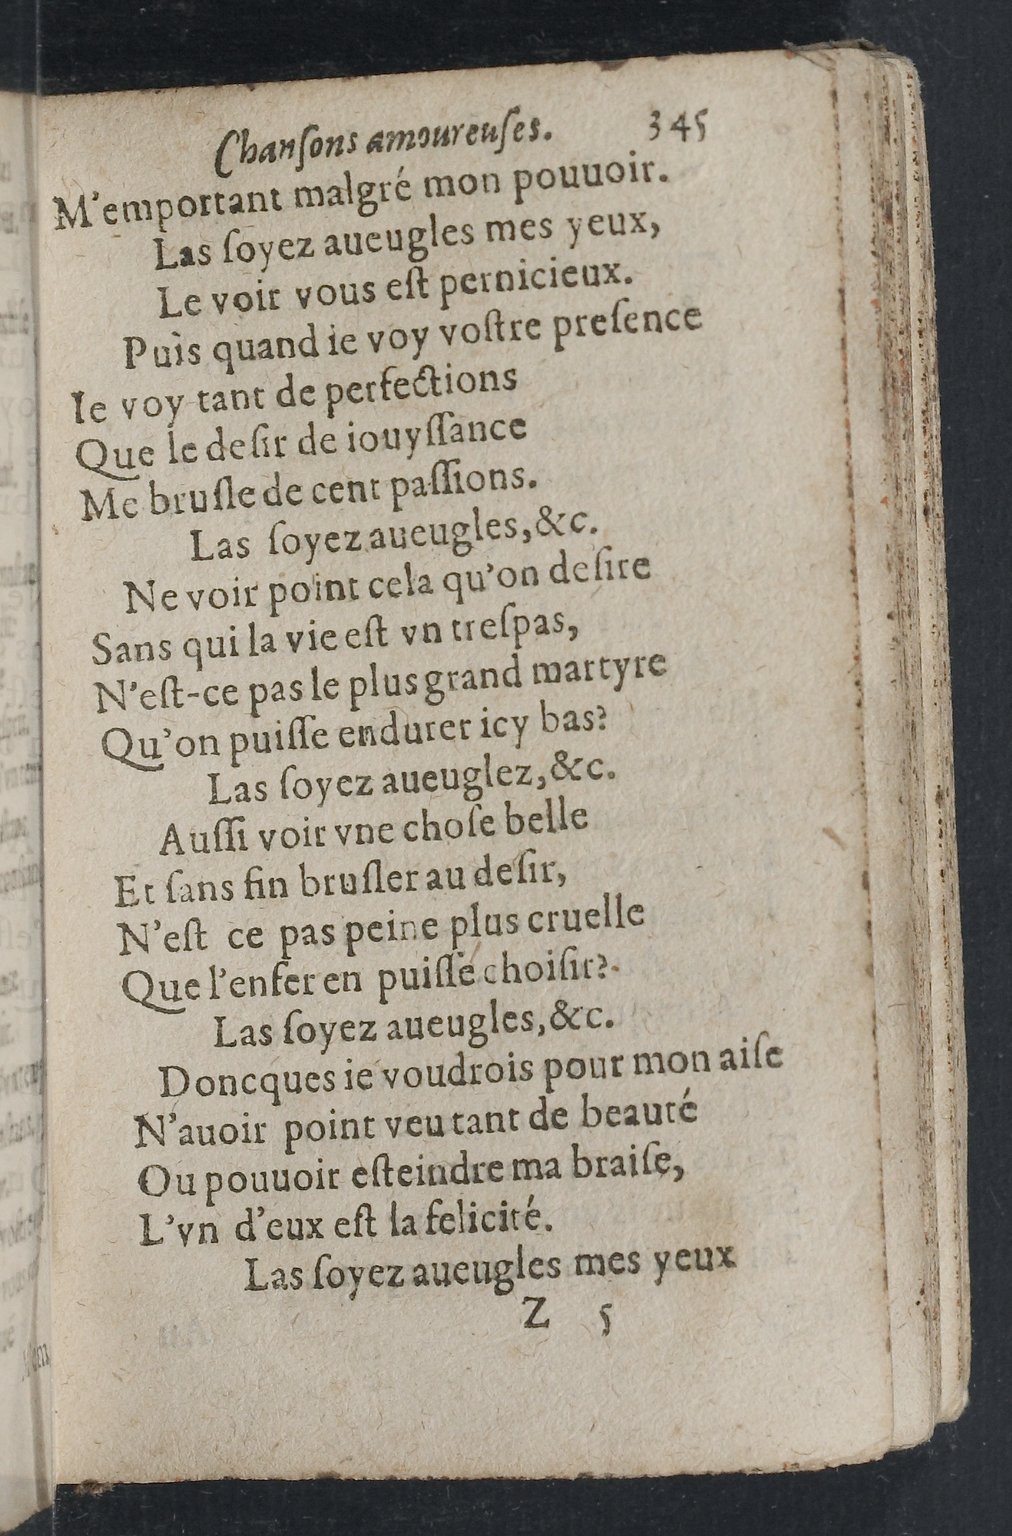 Chanſons amoureuſes. 345
M'emportant malgré mon pouuoir.
Las ſoyez aueugles mes yeux,
Le voir vous eſt pernicieux.
Puis quand ie voy voſtre preſence
Ie voy tant de perfections
Que le deſir de iouyſſance
Me bruſle de cent paſſions.
Las ſoyez aueugles, &c.
Ne voir point cela qu'on deſire
Sans qui la vie eſt vn treſpas,
N'eſt-ce pas le plus grand martyre
Qu'on puiſſe endurer icy bas?
Las ſoyez aueuglez, &c.
Auſſi voir vne choſe belle
Et ſans fin bruſler au deſir,
N'eſt ce pas peine plus cruelle
Que l'enfer en puiſſe choiſir?
Las ſoyez aueugles, &c.
Doncques ie voudrois pour mon aiſe
N'auoir point veu tant de beauté
Ou pouuoir eſteindre ma braiſe,
L'vn d'eux eſt la felicité.
Las ſoyez aueugles mes yeux
Z 5